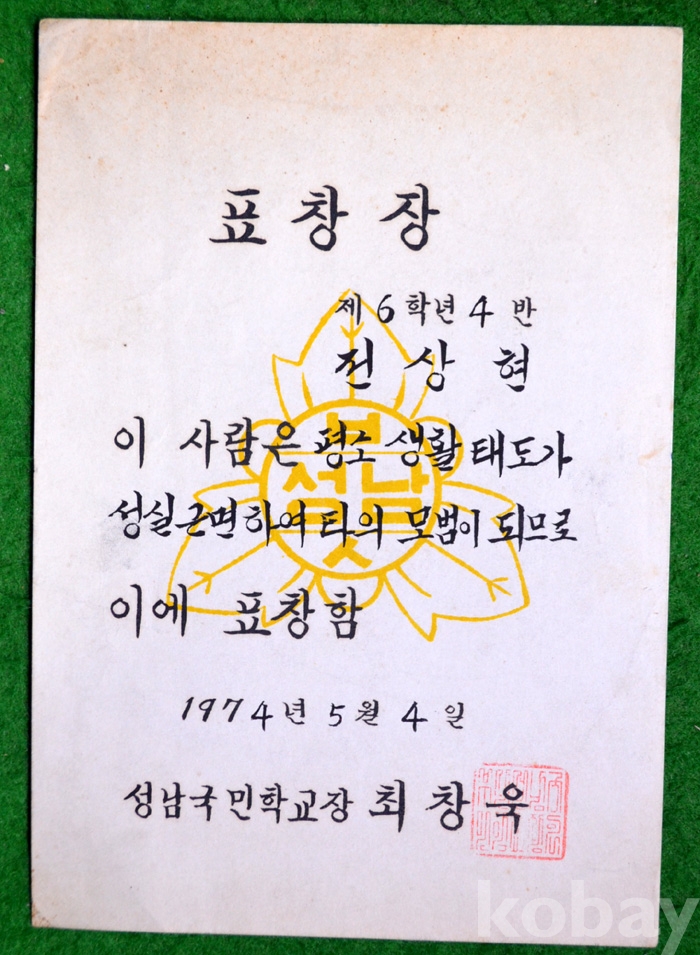 표창장
제6학년4반
전상현
이 사람은 평소 생활 태도가
성실근면하여 타의 모범이 되므로
이에 표창함
1974년 5월 4일
성남국민학교장 최창욱
성남
kobay